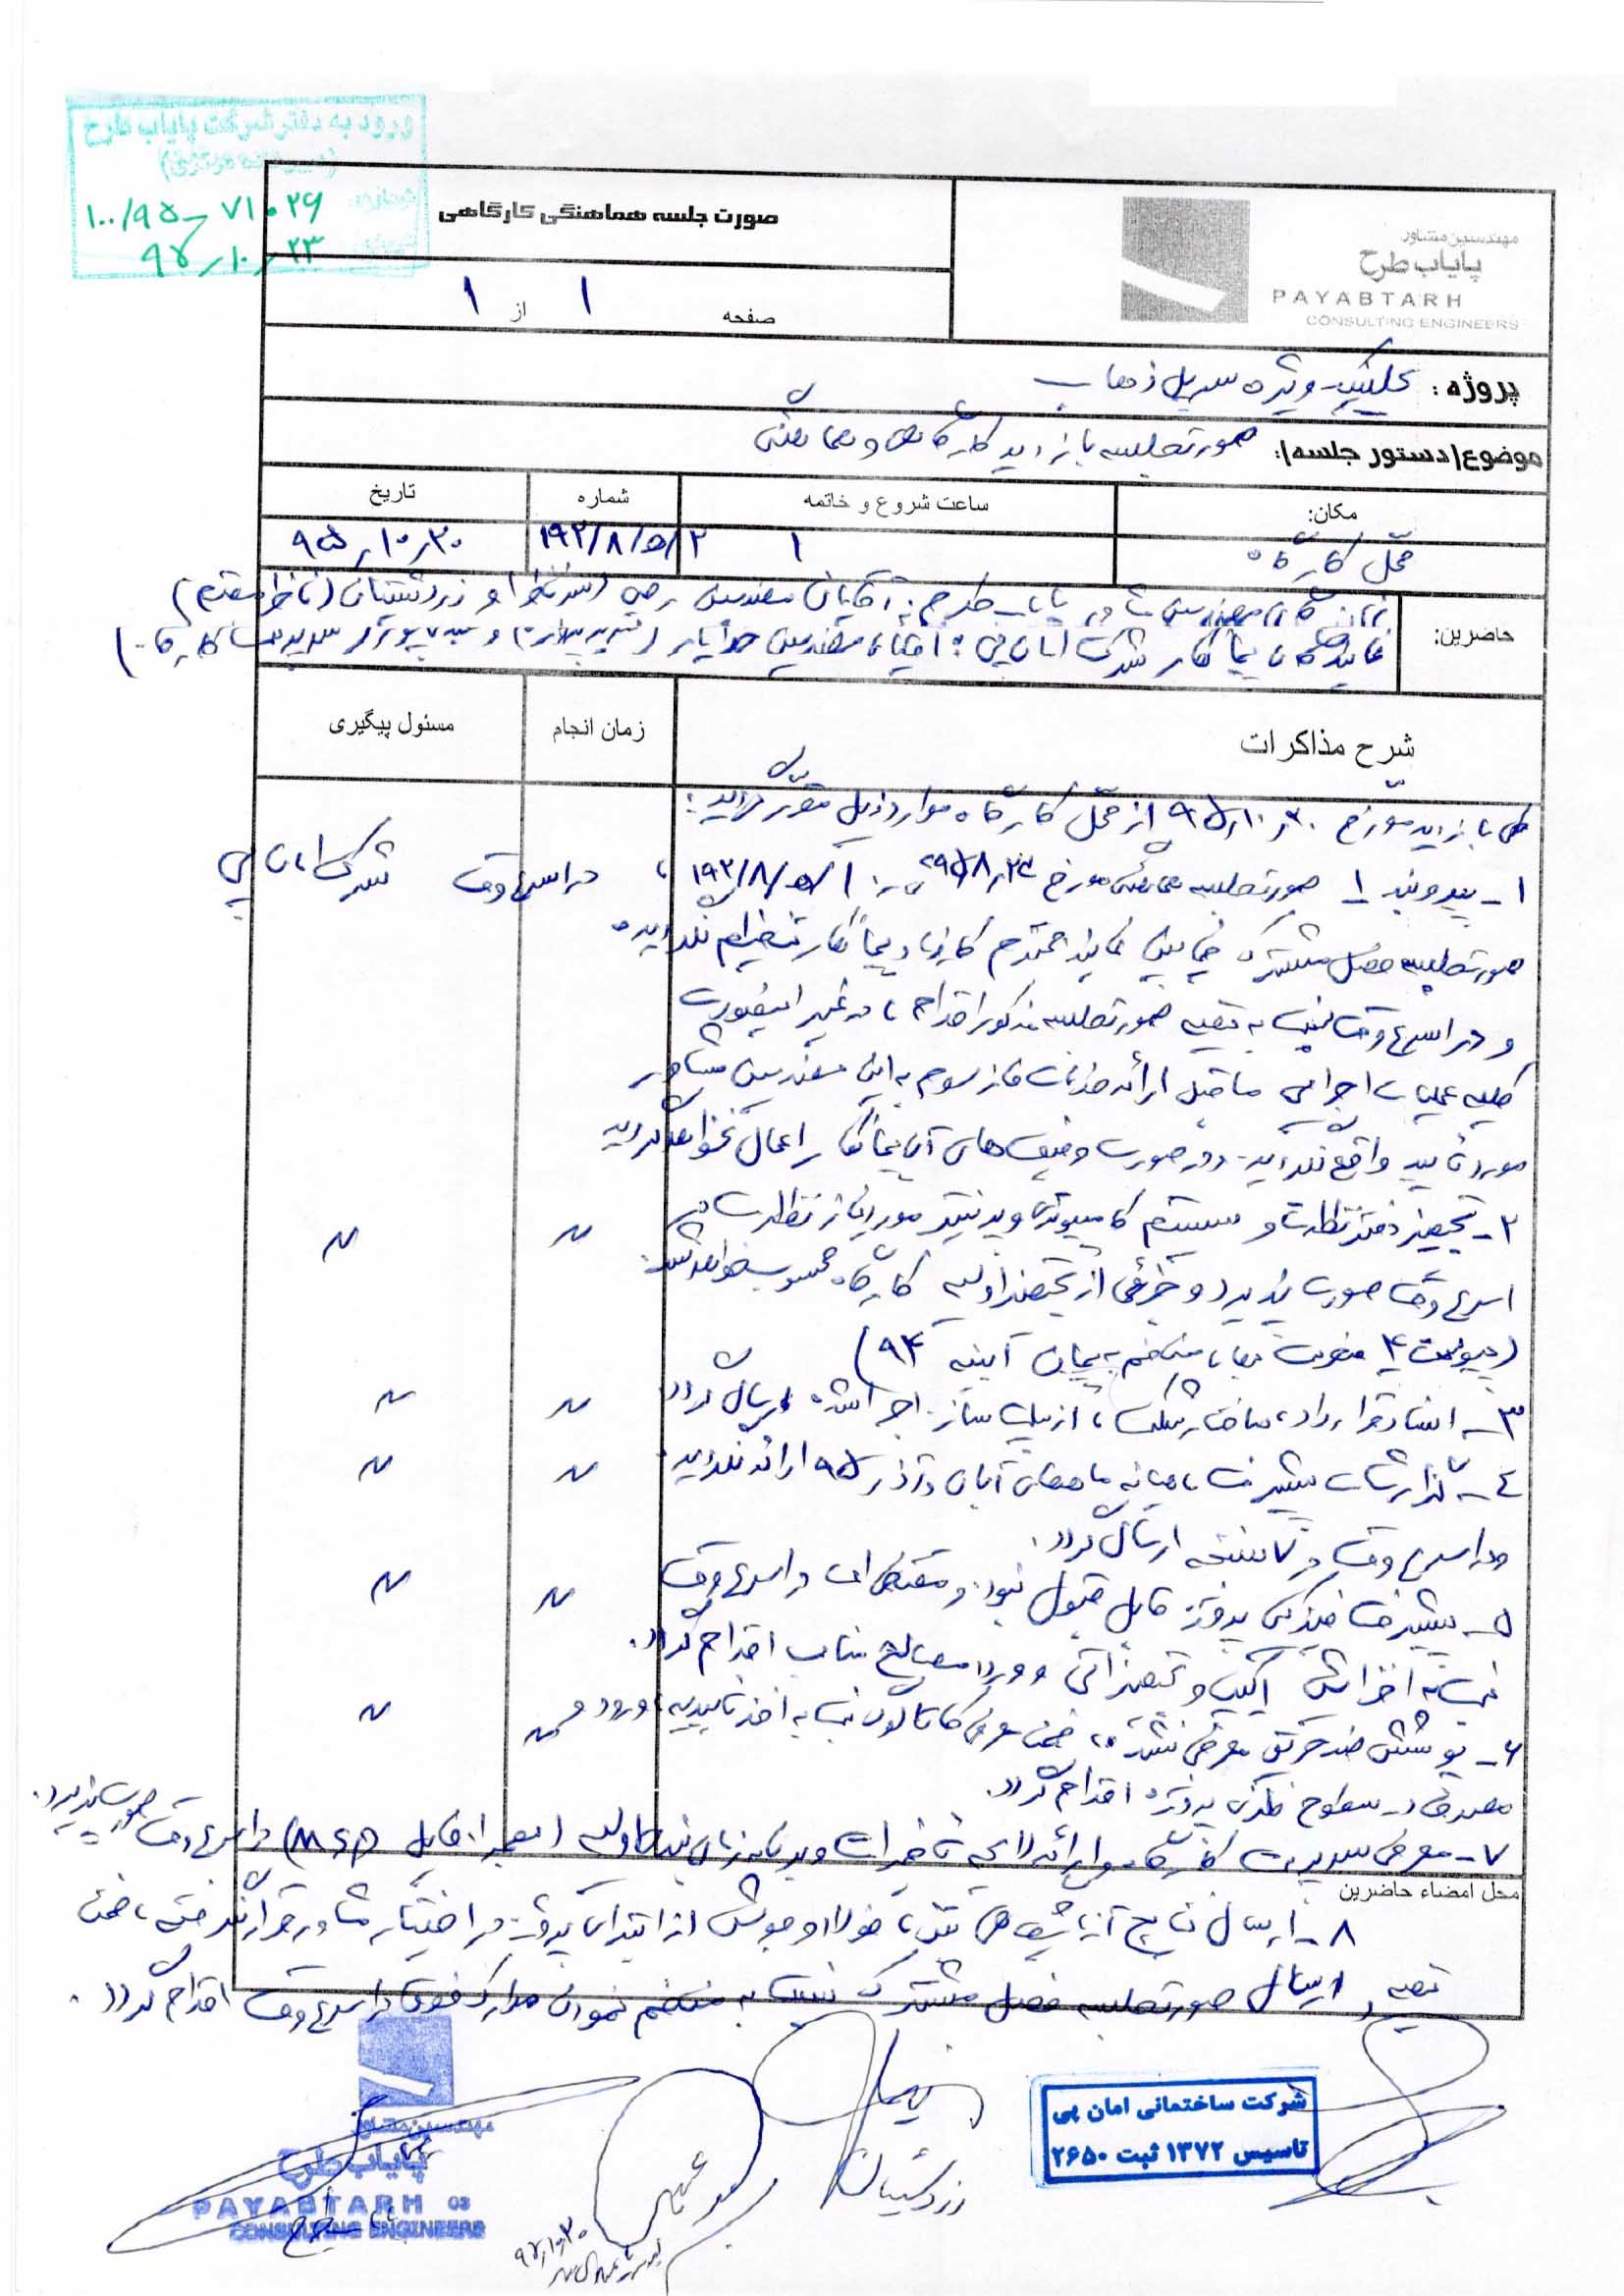 ورود به دفتر شرکت پایاب طرح
۱۰۰/۹۵-۷۱۰۲۶
۹۵/۱۰/۲۳
صورت جلسه هماهنگی کارگاهی
صفحه ۱ از ۱
مهندسین مشاور
پایاب طرح
PAYABTARH
CONSULTING ENGINEERS
پروژه: کلینیک ویژه سرپل ذهاب
موضوع/دستور جلسه/: صورتجلسه بازدید کارگاهی و هماهنگی
مکان:
ساعت شروع و خاتمه
شماره
تاریخ
محل کارگاه
۱
۱۹۲/۸/۵/۲
۹۵/۱۰/۲۰
حاضرین:
نمایندگان مهندسین مشاور پایاب طرح: آقایان مهندسین و زردشتیان (ناظر مقیم)
نمایندگان پیمانکار شرکت امان پی: آقایان مهندسین خدایار و سرپرست کارگاه)
شرح مذاکرات
زمان انجام
مسئول پیگیری
طی بازدید مورخ ۹۵/۱۰/۲۰ از محل کارگاه موارد ذیل مقرر گردید:
۱- پیرو بند ۱ صورتجلسه هماهنگی مورخ ۹۵/۸/۲۴ ۱۹۲/۸/۵/۱، در اسرع وقت شرکت امان پی
صورتجلسه فصل مشترک فی مابین نماینده محترم کارفرما و پیمانکار تنظیم نگردیده
و در اسرع وقت نسبت به تهیه صورتجلسه مذکور اقدام، در غیر اینصورت
کلیه عملیات اجرایی ماقبل ارائه خدمات فاز سوم به این مهندسین مشاور
مورد تایید واقع نگردیده و در صورت وضعیت های آن پیمانکار اعمال نخواهد گردید
۲- تجهیز دفتر نظارت و سیستم کامپیوتری و پرینتر مورد نیاز نظارت در
اسرع وقت صورت پذیرد و جزئی از تجهیز اولیه کارگاه محسوب خواهد شد.
(پیوست ۴ فهرست بها، منضم به پیمان ابنیه ۹۴)
۳- اسناد قرارداد، ساختار شکست، ازبیلت سازه اجرا شده ارسال گردد.
۴- گزارشات پیشرفت ماهیانه ماههای آبان و آذر ۹۵ ارائه نگردیده
در اسرع وقت در ۷ نسخه ارسال گردد.
۵- پیشرفت فیزیکی پروژه قابل قبول نبوده و مقتضی است در اسرع وقت
نسبت به افزایش اکیپ و تجهیزاتی و ورود مصالح مناسب اقدام گردد.
۶- پوشش ضد حریق معرفی نشده، ضمن معرفی کاتالوگ نسبت به اخذ تاییدیه، ورود و
مصرف در سطوح فلزی پروژه اقدام گردد.
۷- معرفی سرپرست کارگاه و ارائه لایحه تاخیرات و برنامه زمان بندی اولیه (بهمراه فایل MSP) در اسرع وقت صورت پذیرد.
محل امضاء حاضرین
۸- ارسال نتایج آزمایش های بتن، فولاد و جوش از ابتدای پروژه در اختیار مشاور قرار نگرفته، ضمن
تهیه و ارسال صورتجلسه فصل مشترک نسبت به منضم نمودن مدارک فوق در اسرع وقت اقدام گردد.
شرکت ساختمانی امان پی
تاسیس ۱۳۷۲ ثبت ۲۶۵۰
زردشتیان
۹۵/۱۰/۲۰
مهندسین مشاور
پایاب طرح
PAYABTARH 03
CONSULTING ENGINEERS